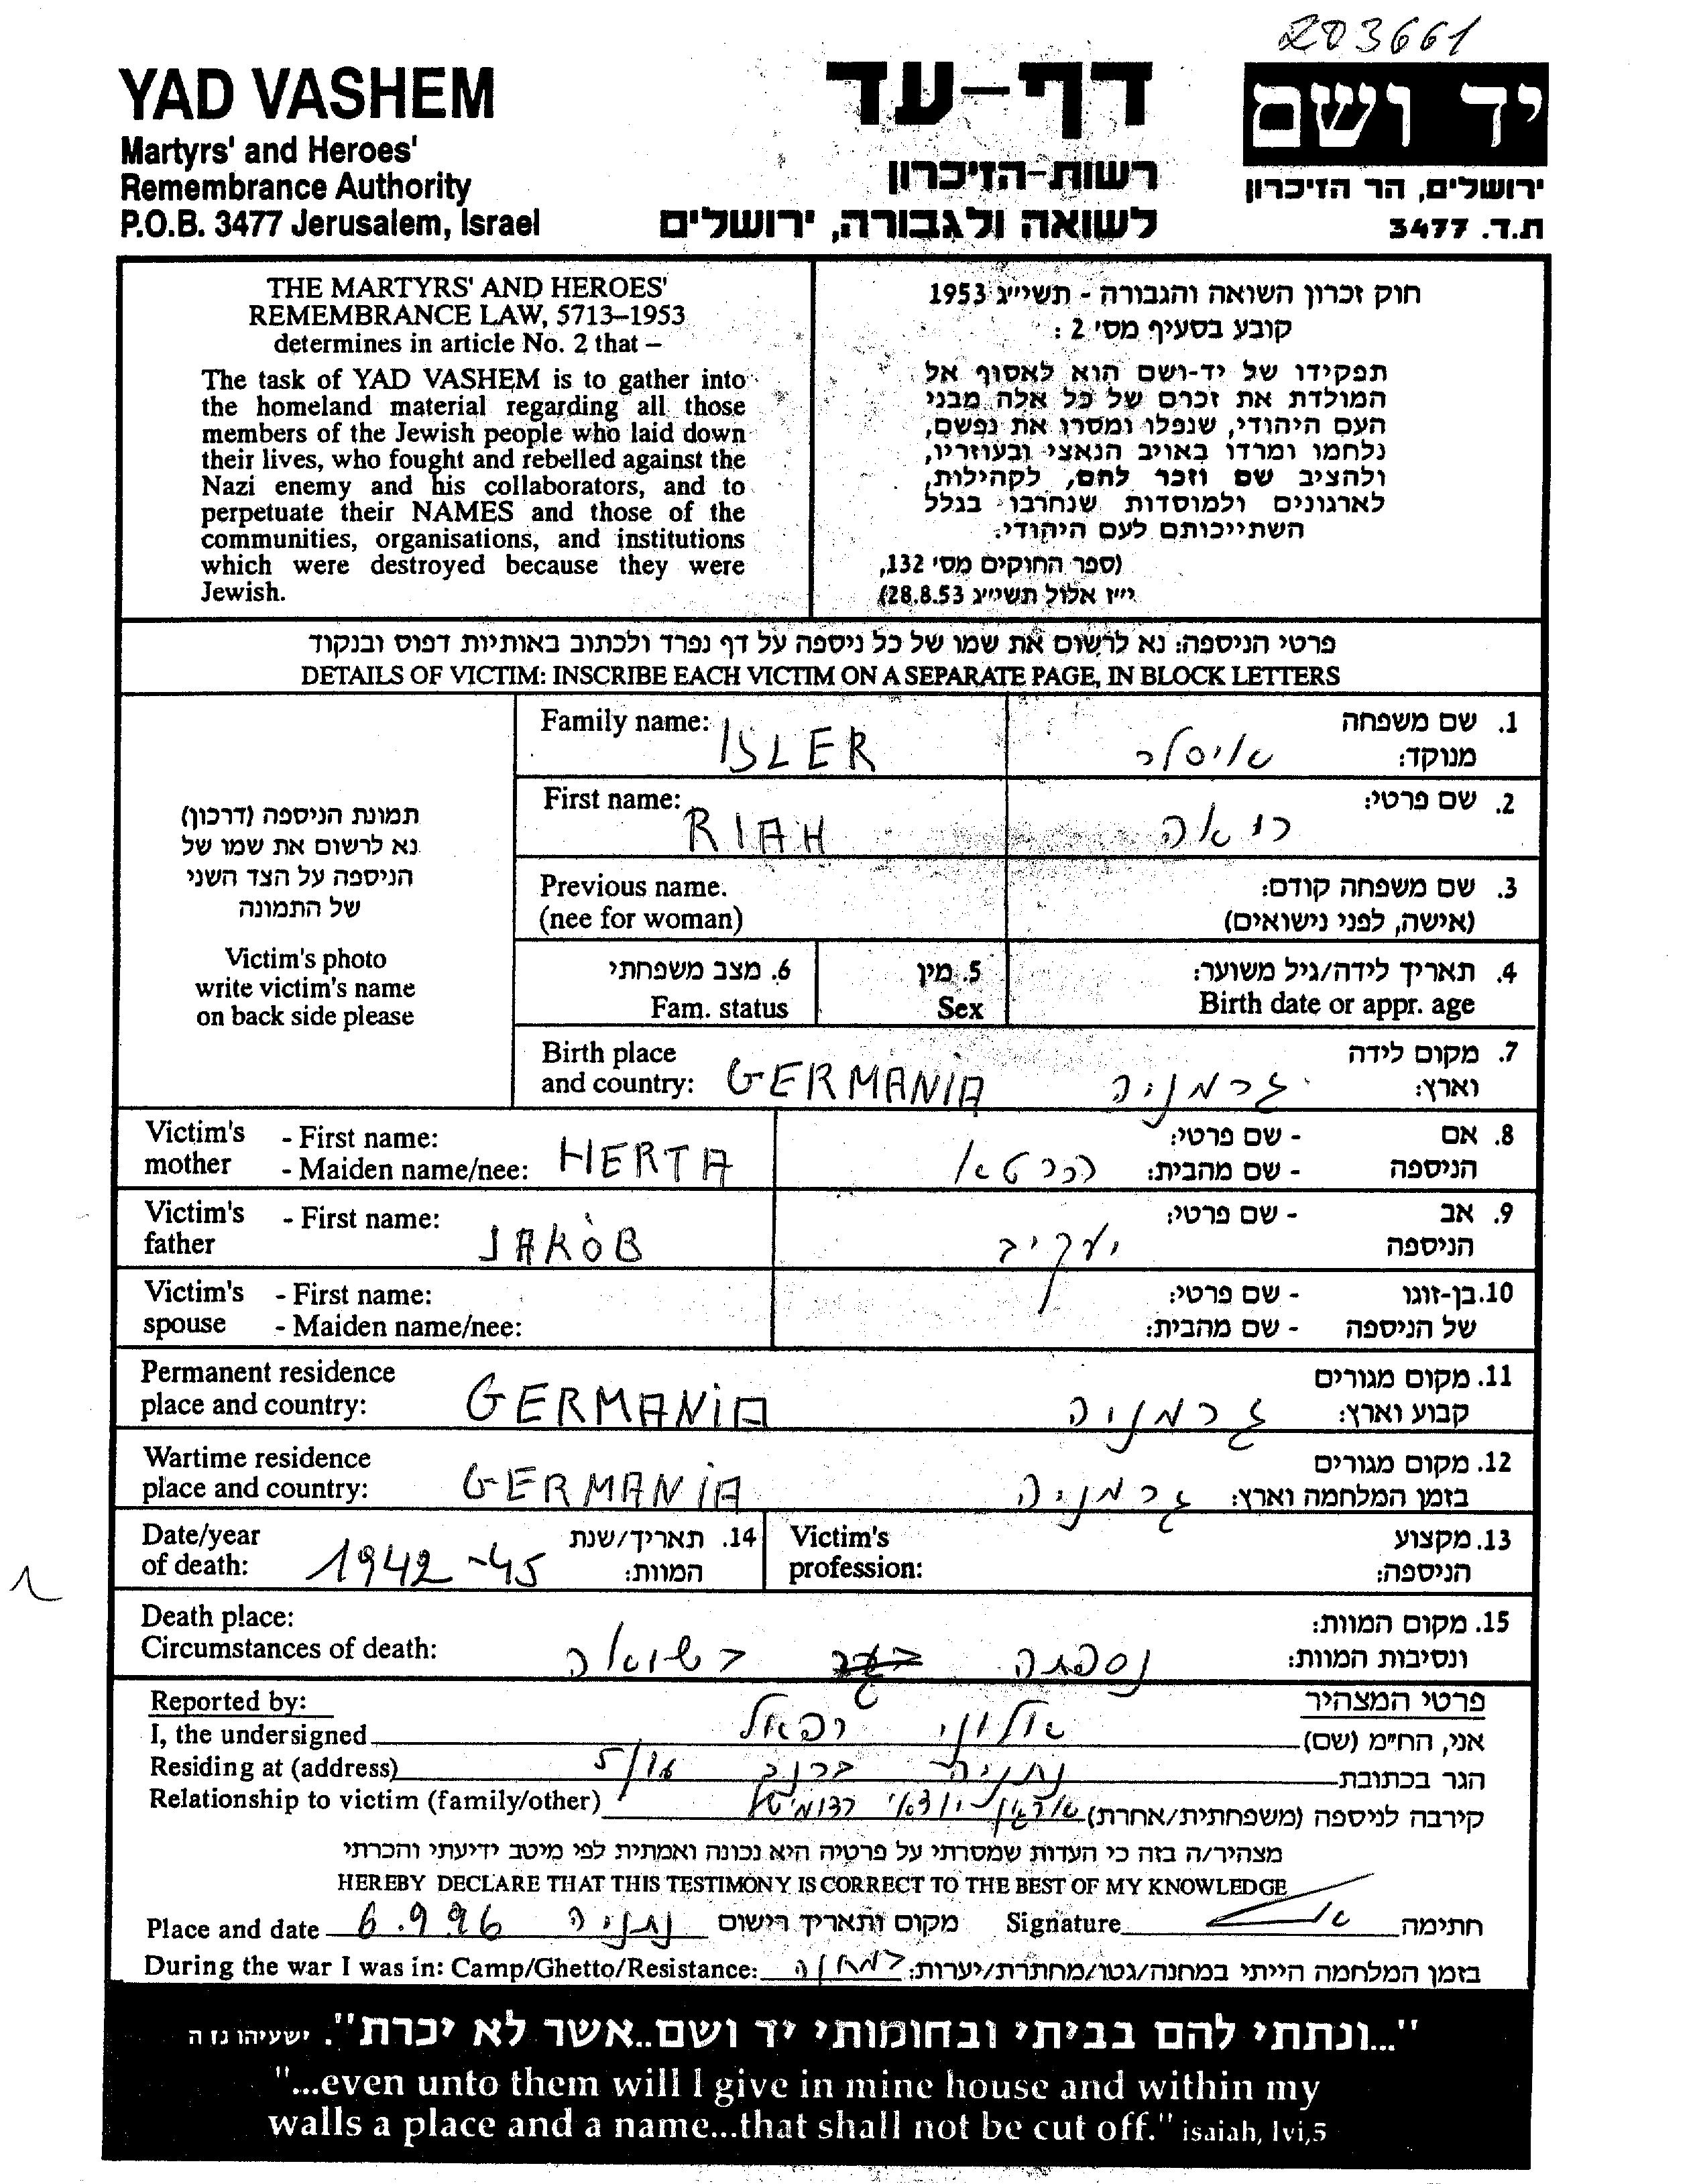 203661
YAD VASHEM
Martyrs' and Heroes'
Remembrance Authority
P.O.B. 3477 Jerusalem, Israel
דף-עד
רשות-הזיכרון
לשואה ולגבורה, ירושלים
יד ושם
ירושלים, הר הזיכרון
ת.ד. 3477
THE MARTYRS' AND HEROES'
REMEMBRANCE LAW, 5713–1953
determines in article No. 2 that –
The task of YAD VASHEM is to gather into
the homeland material regarding all those
members of the Jewish people who laid down
their lives, who fought and rebelled against the
Nazi enemy and his collaborators, and to
perpetuate their NAMES and those of the
communities, organisations, and institutions
which were destroyed because they were
Jewish.
חוק זכרון השואה והגבורה - תשי״ג 1953
קובע בסעיף מס׳ 2 :
תפקידו של יד-ושם הוא לאסוף אל
המולדת את זכרם של כל אלה מבני
העם היהודי, שנפלו ומסרו את נפשם,
נלחמו ומרדו באויב הנאצי ובעוזריו,
ולהציב שם וזכר להם, לקהילות,
לארגונים ולמוסדות שנחרבו בגלל
השתייכותם לעם היהודי.
(ספר החוקים מס׳ 132,
י״ז אלול תשי״ג 28.8.53)
פרטי הניספה: נא לרשום את שמו של כל ניספה על דף נפרד ולכתוב באותיות דפוס ובנקוד
DETAILS OF VICTIM: INSCRIBE EACH VICTIM ON A SEPARATE PAGE, IN BLOCK LETTERS
תמונת הניספה (דרכון)
נא לרשום את שמו של
הניספה על הצד השני
של התמונה
Victim's photo
write victim's name
on back side please
Family name: ISLER איסלר 1. שם משפחה
מנוקד:
First name: RIAH ריאה 2. שם פרטי:
Previous name. 3. שם משפחה קודם:
(nee for woman) (אישה, לפני נישואים)
6. מצב משפחתי 5. מין 4. תאריך לידה/גיל משוער:
Fam. status Sex Birth date or appr. age
Birth place 7. מקום לידה
and country: GERMANIA גרמניה וארץ:
Victim's - First name: - שם פרטי: 8. אם
mother - Maiden name/nee: HERTA הרטא - שם מהבית: הניספה
Victim's - First name: - שם פרטי: 9. אב
father JAKOB יעקב הניספה
Victim's - First name: - שם פרטי: 10. בן-זוגו
spouse - Maiden name/nee: - שם מהבית: של הניספה
Permanent residence 11. מקום מגורים
place and country: GERMANIA גרמניה קבוע וארץ:
Wartime residence 12. מקום מגורים
place and country: GERMANIA גרמניה בזמן המלחמה וארץ:
Date/year 14. תאריך/שנת Victim's 13. מקצוע
of death: 1942-45 המוות: profession: הניספה:
Death place: 15. מקום המוות:
Circumstances of death: נספתה בשואה ונסיבות המוות:
Reported by: פרטי המצהיר
I, the undersigned אלוני רפאל אני, הח״מ (שם)
Residing at (address) נתניה 5/16 הגר בכתובת
Relationship to victim (family/other) ארגון יוצאי קירבה לניספה (משפחתית/אחרת)
מצהיר/ה בזה כי העדות שמסרתי על פרטיה היא נכונה ואמתית לפי מיטב ידיעתי והכרתי
HEREBY DECLARE THAT THIS TESTIMONY IS CORRECT TO THE BEST OF MY KNOWLEDGE
Place and date 6.9.96 נתניה מקום ותאריך רישום Signature חתימה
During the war I was in: Camp/Ghetto/Resistance: במחנה בזמן המלחמה הייתי במחנה/גטו/מחתרת/יערות:
"...ונתתי להם בביתי ובחומותי יד ושם..אשר לא יכרת". ישעיהו נו ה
"...even unto them will I give in mine house and within my
walls a place and a name...that shall not be cut off." isaiah, lvi,5